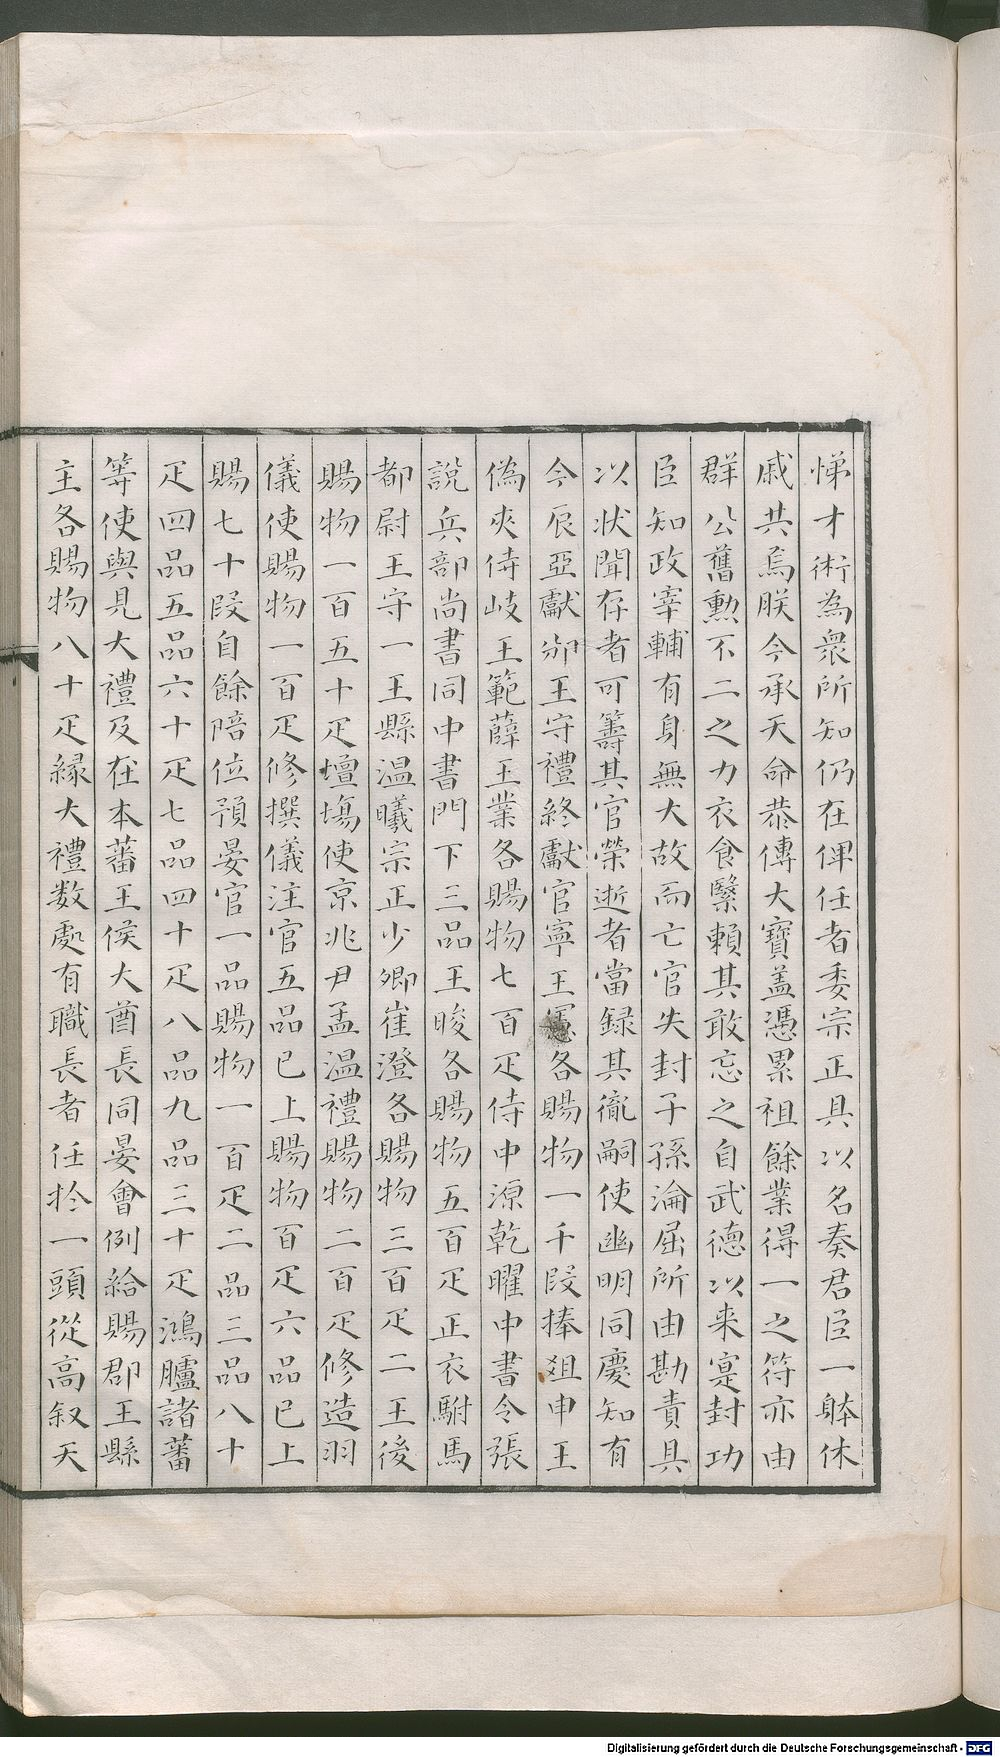 悌才術為衆所知仍在俾任者委宗正具以名奏君臣一躰休
戚共焉朕今承天命恭傳大寶盖憑累祖餘業得一之符亦由
群公舊勲不二之力衣食繄賴其敢忘之自武德以来寔封功
臣知政宰輔有身無大故而亡官失封子孫淪屈所由勘責具
以状聞存者可籌其官榮逝者當録其徹嗣使幽明同慶知有
今辰亞獻邠王守禮終獻官寧王憲各賜物一千段捧爼申王
偽夾侍岐王範薛王業各賜物七百疋侍中源乾曜中書令張
說兵部尚書同中書門下三品王晙各賜物五百疋正衣駙馬
都尉王守一王縣温曦宗正少卿崔澄各賜物三百疋二王後
賜物一百五十疋壇塲使京兆尹孟温禮賜物二百疋修造羽
儀使賜物一百疋修撰儀注官五品已上賜物百疋六品已上
賜七十段自餘陪位預晏官一品賜物一百疋二品三品八十
疋四品五品六十疋七品四十疋八品九品三十疋鴻臚諸蕃
等使與見大禮及在本蕃王侯大酋長同晏會例給賜郡王縣
主各賜物八十疋縁大禮数處有職長者任扵一頭從高叙天
Digitalisierung gefördert durch die Deutsche Forschungsgemeinschaft - DFG